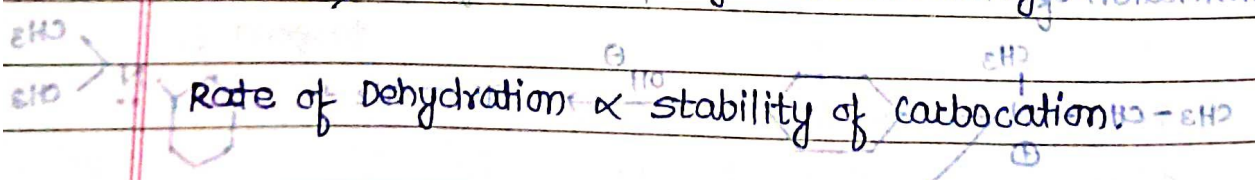 Rate of Dehydration ∝ stability of carbocation.